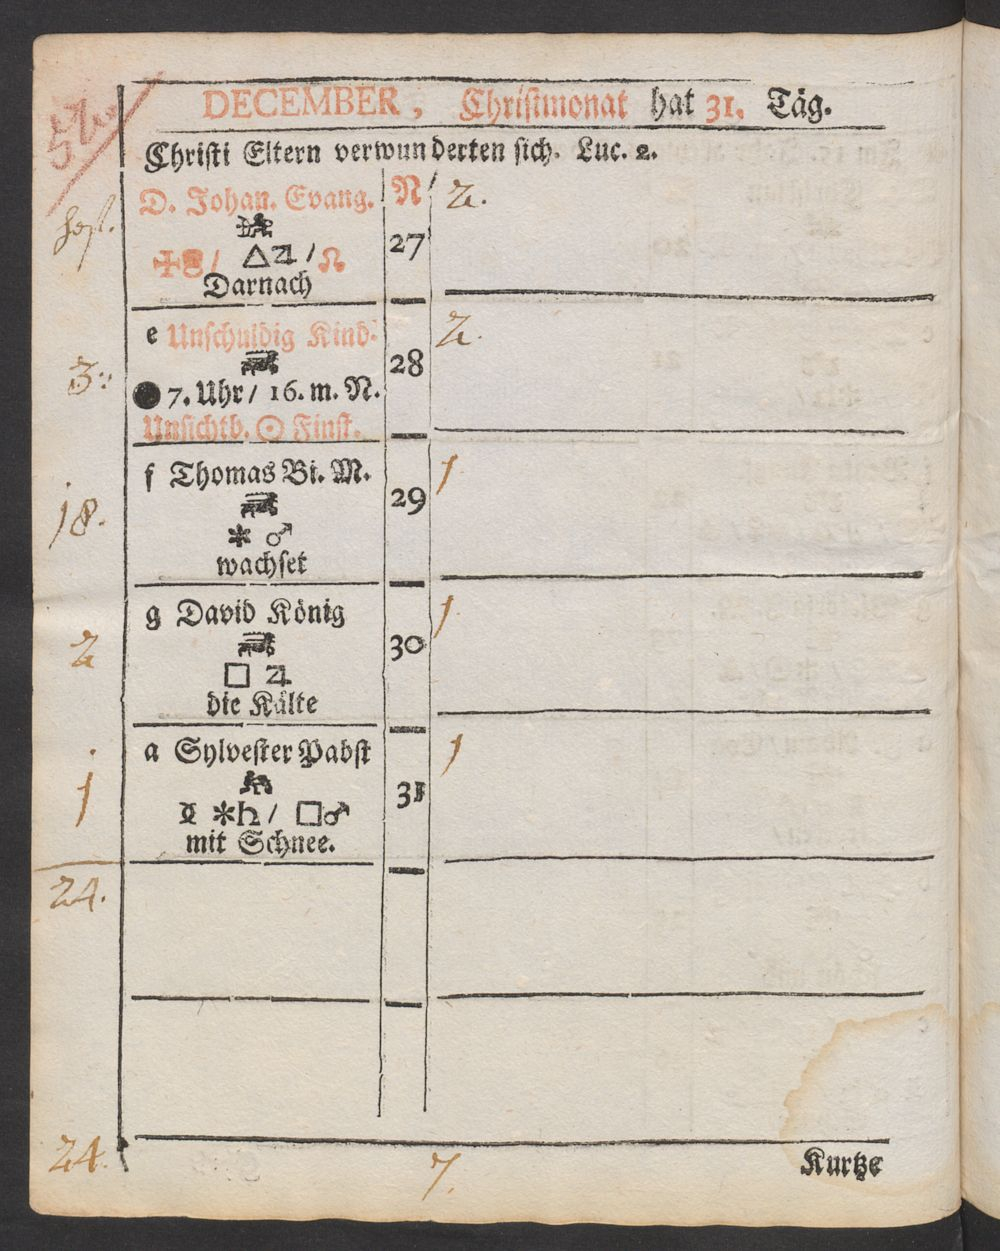 52.
DECEMBER, Christmonat hat 31. Täg.
Christi Eltern verwunderten sich. Luc. 2.
D. Johan. Evang. N 2.
27
△♃ / ☊
Darnach
e Unschuldig Kind. 2.
3. 28
● 7. Uhr / 16. m. N.
Unsichtb. ☉ Finst.
f Thomas Bi. M. 1
18. 29
✱ ♂
wachset
g David König 1
2 30
□ ♃
die Kälte
a Sylvester Pabst 1
1 31
✱♄ / □♂
mit Schnee.
24.
24. 7.
Kurtze